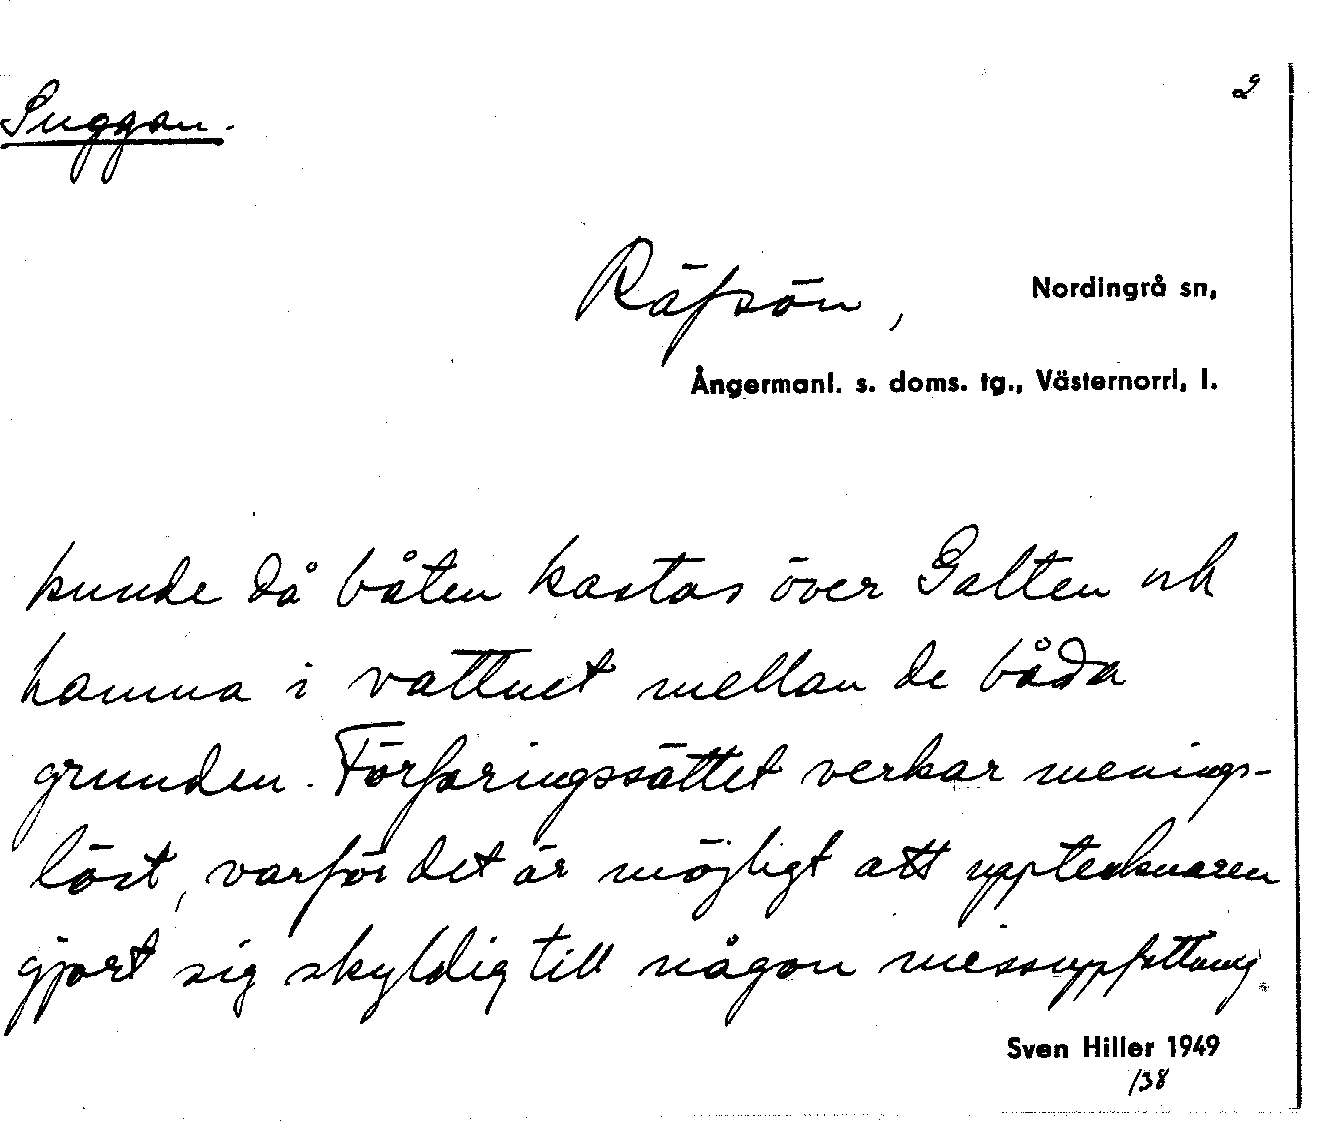 2
Suggan.
Räfsön, Nordingrå sn,
Ångermanl. s. doms. tg., Västernorrl. l.
kunde då båten kastas över Galten och
hamna i vattnet mellan de båda
grunden. Förfaringssättet verkar menings-
löst, varför det är möjligt att upptecknaren
gjort sig skyldig till någon missuppfattning.
Sven Hiller 1949
/38